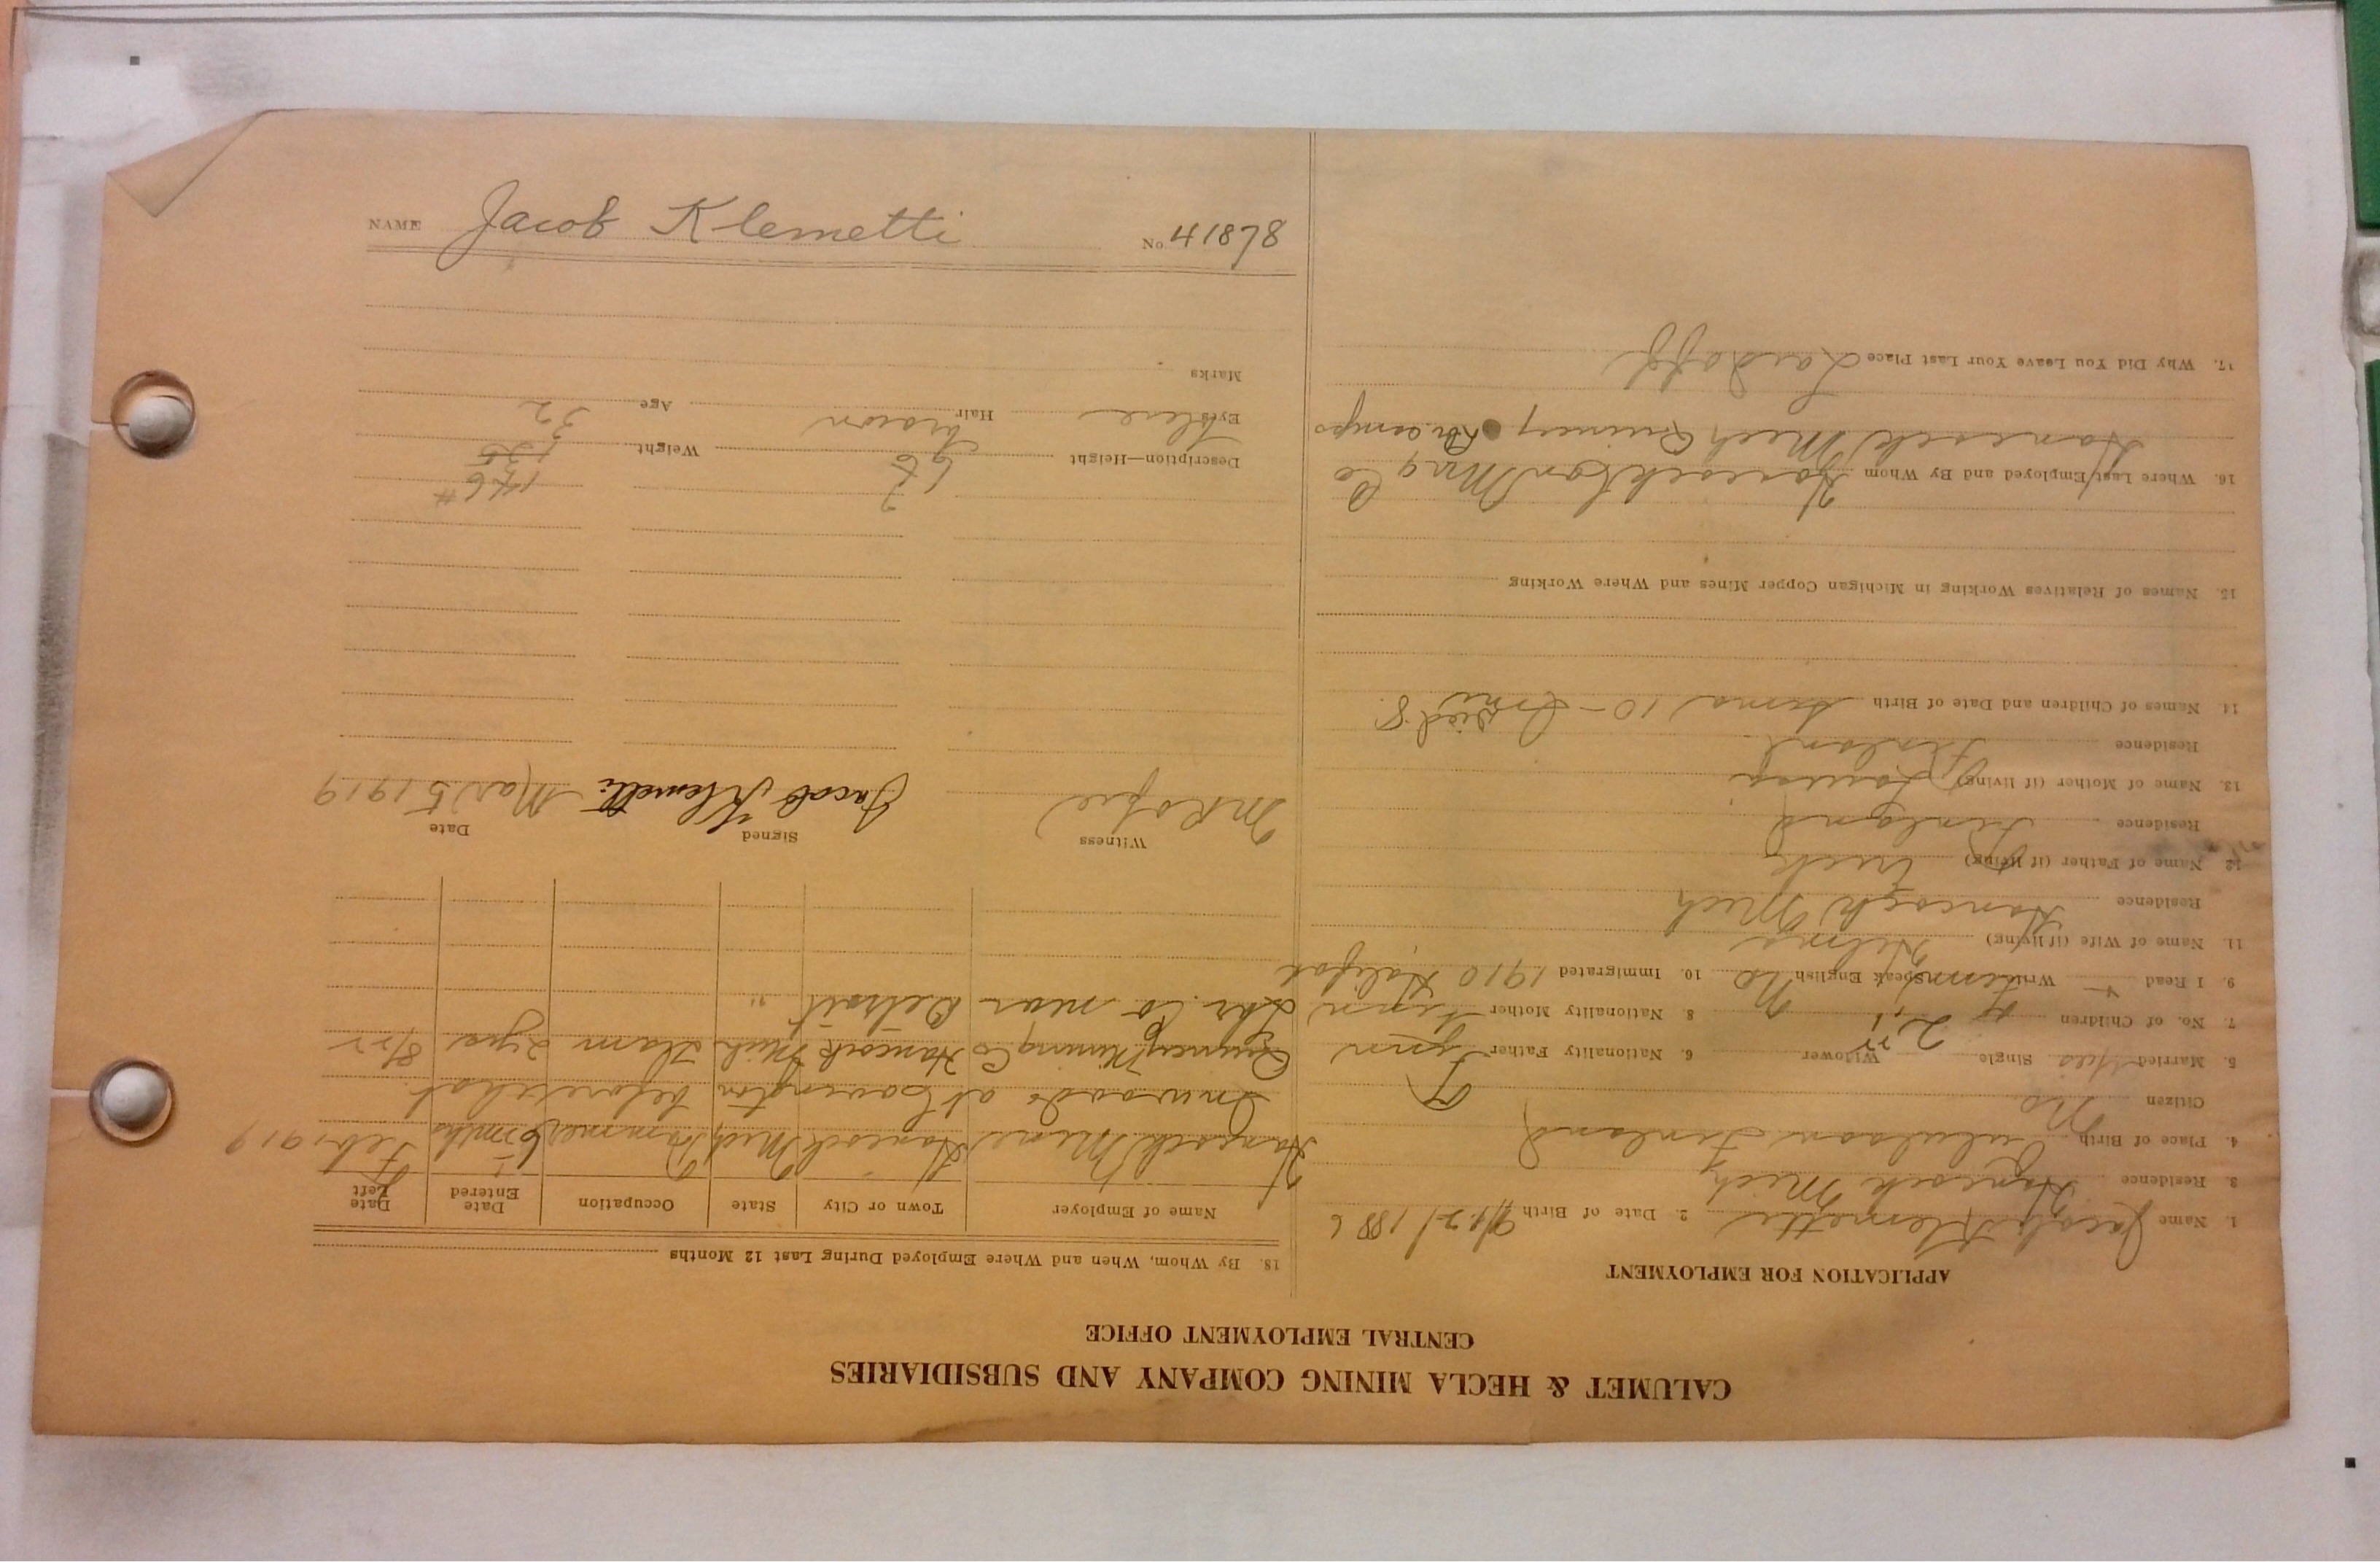 NAME Jacob Klemetti No 41878
CALUMET & HECLA MINING COMPANY AND SUBSIDIARIES
CENTRAL EMPLOYMENT OFFICE
APPLICATION FOR EMPLOYMENT
1. Name Jacob Klemetti 2. Date of Birth 9/12/1886
3. Residence Hancock Mich
4. Place of Birth Finland
Citizen no
5. Married Yes Single Widower 6. Nationality Father Finn
7. No. of Children 8. Nationality Mother Finn
9. I Read Write Speak English No 10. Immigrated 1910 Halifax
11. Name of Wife (if living) Helma
Residence Hancock Mich
12. Name of Father (if living) Erick
Residence Finland
13. Name of Mother (if living)
Residence Finland
14. Names of Children and Date of Birth 10 - died 8
15. Names of Relatives Working in Michigan Copper Mines and Where Working
16. Where Last Employed and By Whom Hancock Con Mng Co
Hancock Mich Quincy camps
17. Why Did You Leave Your Last Place Laid off
18. By Whom, When and Where Employed During Last 12 Months
Name of Employer Town or City State Occupation Date Entered Date Left
Hancock Mine Hancock Mich Trammer 6 mths Feb 1919
In woods at Covington before that
Quincy Mining Co Hancock Mich Tram 2 yrs
Lbr. Co near Detroit "
Witness Signed Date
Jacob Klemetti Mar 5 1919
146 #
Description—Height Weight 135
Eyes blue Hair brown Age 32
Marks